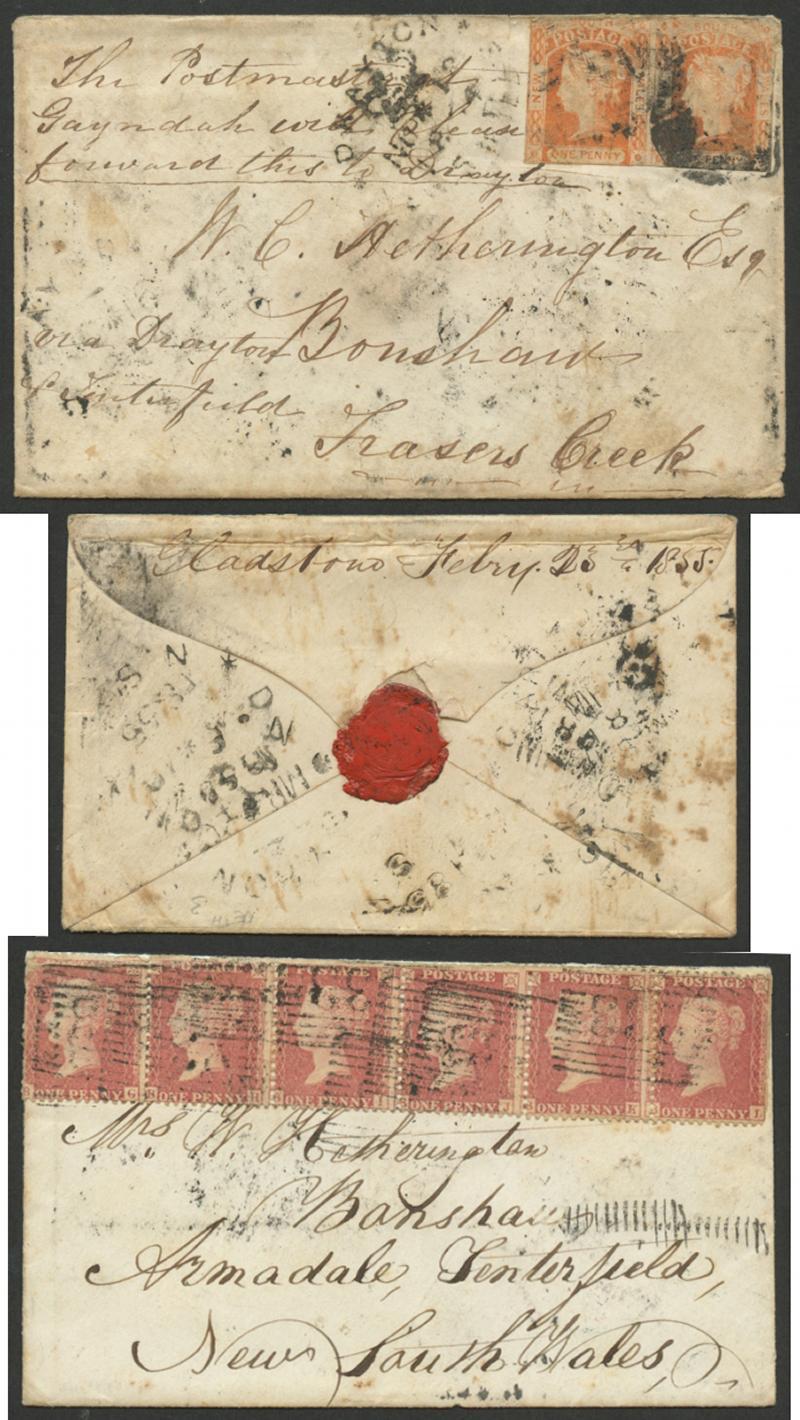 The Postmaster at
Gayndah will please
forward this to Drayton
DRAYTON
POSTAGE POSTAGE
NEW
ONE PENNY ONE PENNY
W. C. Hetherington Esq
via Drayton Bonshaw
& Tenterfield
Frasers Creek
Gladstone Febry. 23rd 1855.
DRAYTON
1855
POSTAGE POSTAGE POSTAGE POSTAGE POSTAGE POSTAGE
ONE PENNY ONE PENNY ONE PENNY ONE PENNY ONE PENNY ONE PENNY
Mrs W. Hetherington
Bonshaw
Armadale, Tenterfield,
New South Wales,